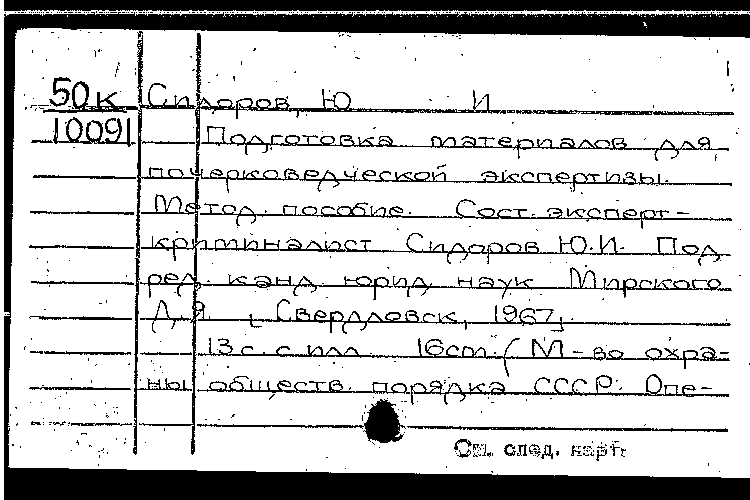 50к Сидоров, Ю И
10091 Подготовка материалов для
почерковедческой экспертизы.
Метод. пособие. Сост. эксперт-
криминалист Сидоров Ю.И. Под
ред. канд. юрид. наук Мирского
Д.Я. [Свердловск, 1967].
13 с. с илл. 16 см. (М-во охра-
ны обществ. порядка СССР. Опе-
См. след. карт.